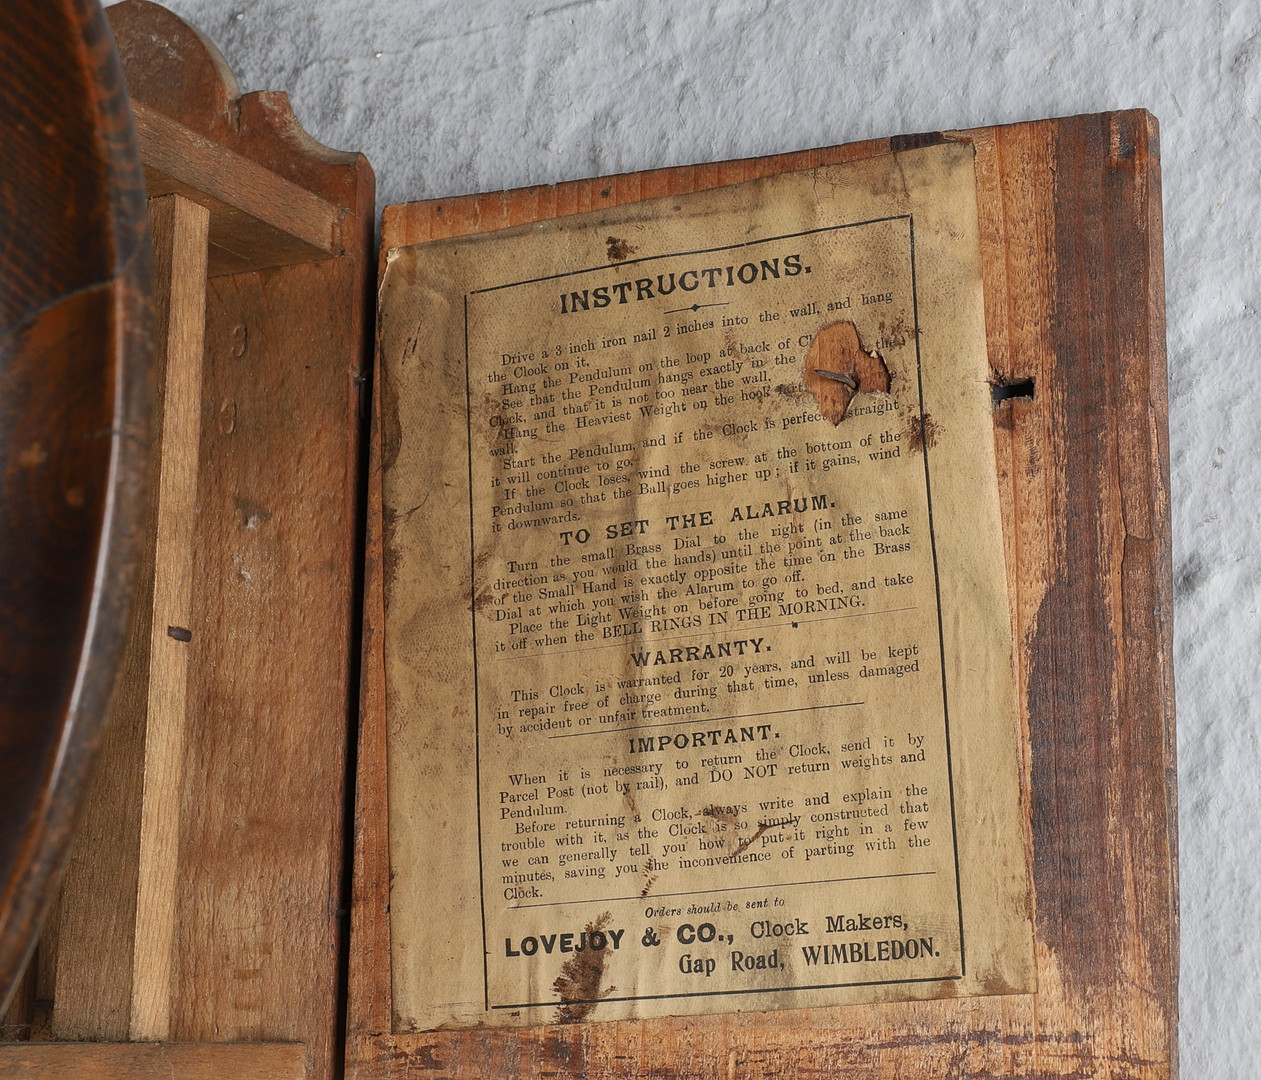 INSTRUCTIONS.
Drive a 3 inch iron nail 2 inches into the wall, and hang
the Clock on it.
Hang the Pendulum on the loop at back of
See that the Pendulum hangs exactly in the
Clock, and that it is not too near the wall.
Hang the Heaviest Weight on the hook
wall.
Start the Pendulum, and if the Clock is straight
it will continue to go.
If the Clock loses, wind the screw at the bottom of the
Pendulum so that the Ball goes higher up; if it gains, wind
it downwards.
TO SET THE ALARUM.
Turn the small Brass Dial to the right (in the same
direction as you would the hands) until the point at the back
of the Small Hand is exactly opposite the time on the Brass
Dial at which you wish the Alarum to go off.
Place the Light Weight on before going to bed, and take
it off when the BELL RINGS IN THE MORNING.
WARRANTY.
This Clock is warranted for 20 years, and will be kept
in repair free of charge during that time, unless damaged
by accident or unfair treatment.
IMPORTANT.
When it is necessary to return the Clock, send it by
Parcel Post (not by rail), and DO NOT return weights and
Pendulum.
Before returning a Clock, always write and explain the
trouble with it, as the Clock is so simply constructed that
we can generally tell you how to put it right in a few
minutes, saving you the inconvenience of parting with the
Clock.
Orders should be sent to
LOVEJOY & CO., Clock Makers,
Gap Road, WIMBLEDON.